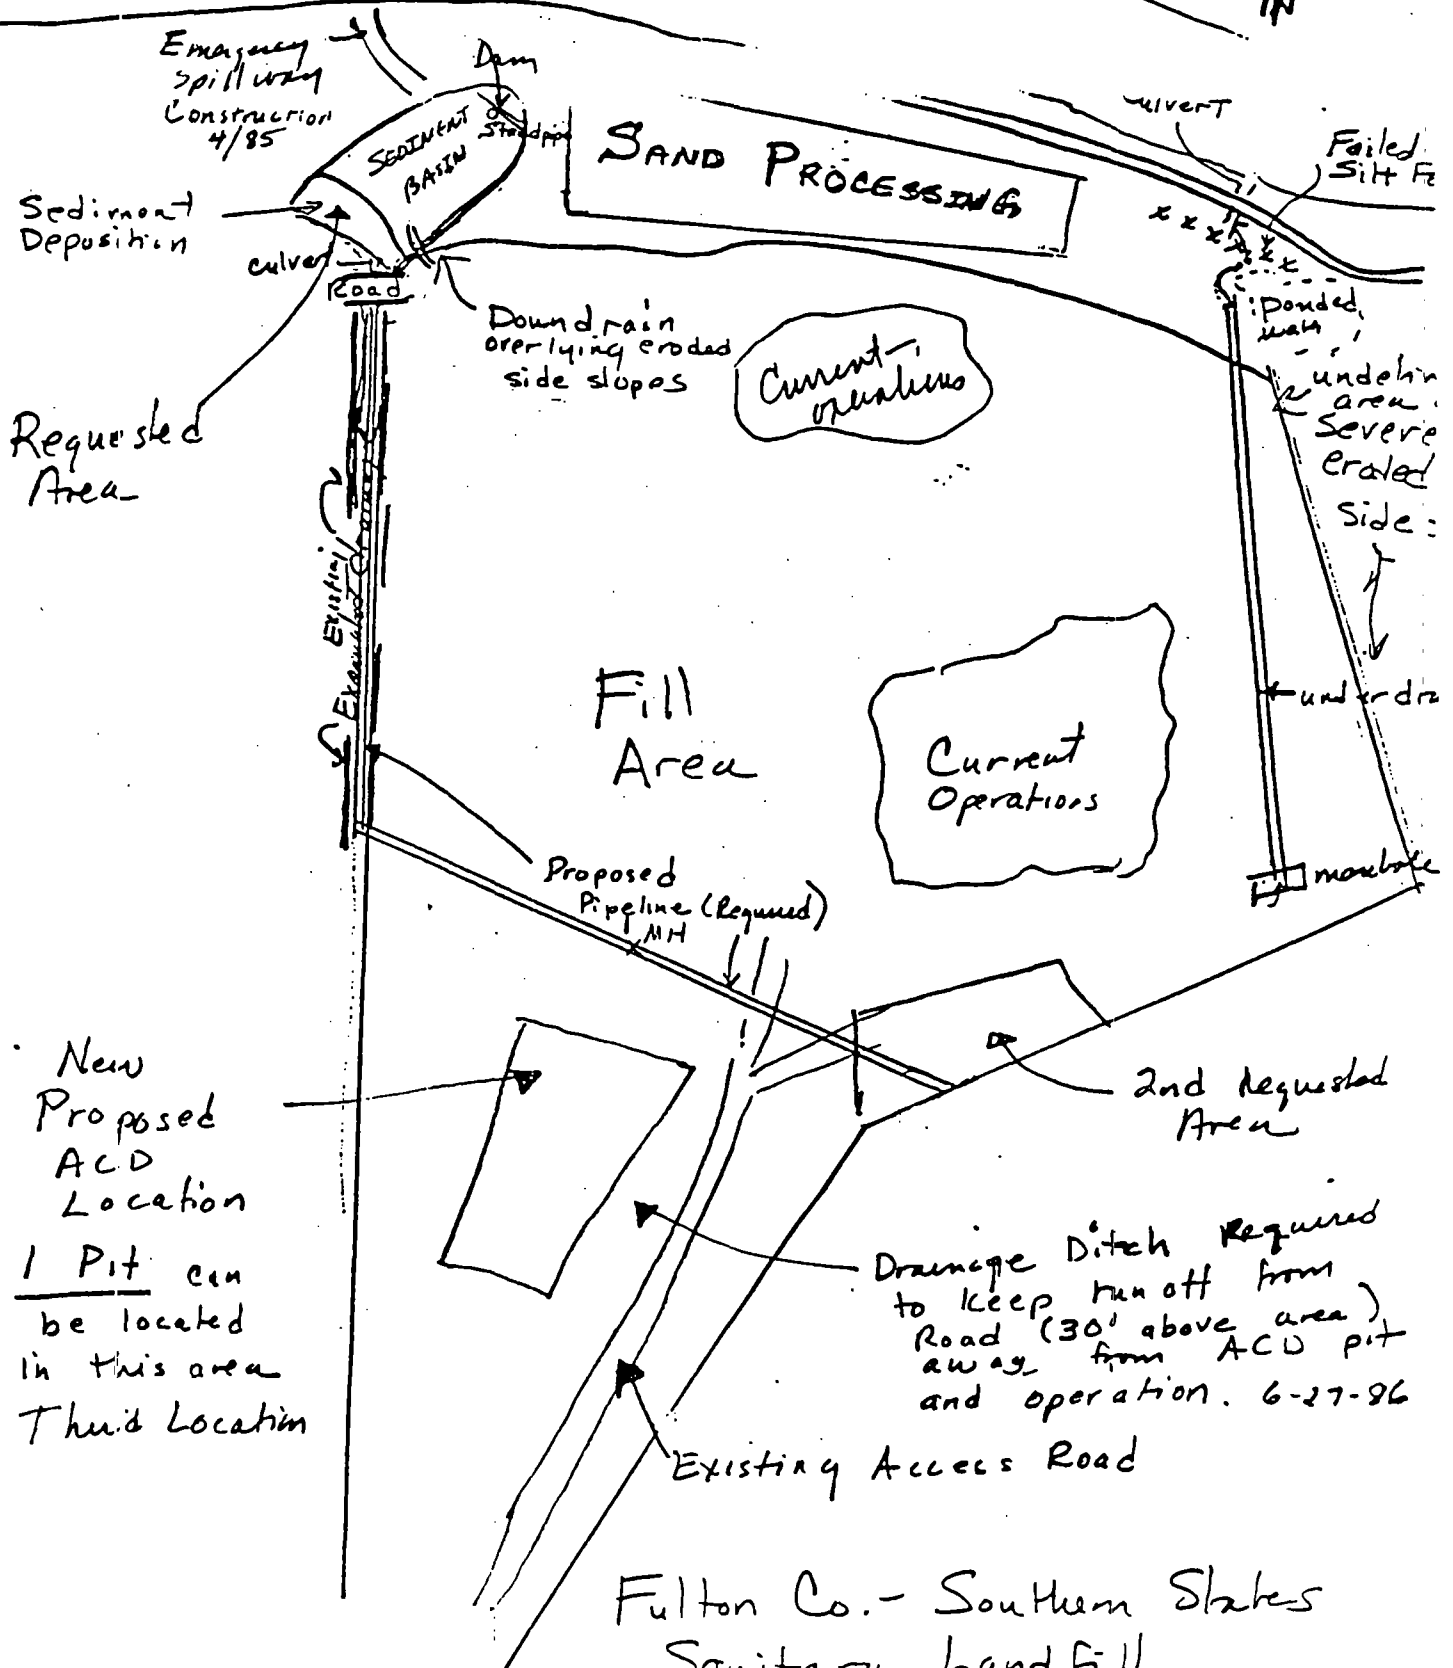 IN
Emergency
Spillway
Construction
4/85
Dam
Standpipe
SEDIMENT
BASIN
SAND PROCESSING
Culvert
Failed
Silt
Sediment
Deposition
culvert
Road
Downdrain
overlying eroded
side slopes
Current
operations
ponded
area
Severe
eroded
Side
Requested
Area
Existing
Fill
Area
Current
Operations
manhole
Proposed
Pipeline (Required)
MH
New
Proposed
ACD
Location
1 Pit can
be located
in this area
Third Location
2nd Requested
Area
Drainage Ditch Required
to keep run off from
Road (30' above area)
away from ACD pit
and operation. 6-27-86
Existing Access Road
Fulton Co.- Southern States
Sanitary Landfill